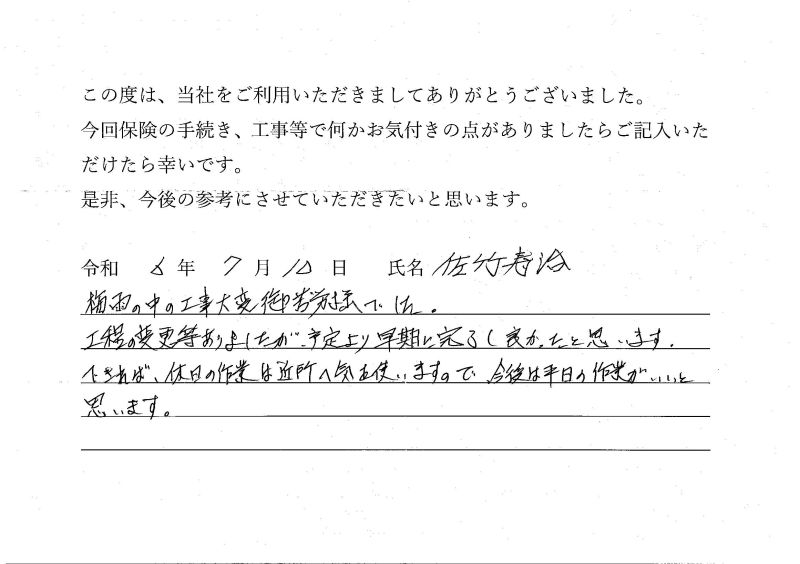 この度は、当社をご利用いただきましてありがとうございました。
今回保険の手続き、工事等で何かお気付きの点がありましたらご記入いた
だけたら幸いです。
是非、今後の参考にさせていただきたいと思います。
令和 6 年 7 月 10 日 氏名 佐竹寿治
梅雨の中の工事大変御苦労様でした。
工程の変更等ありましたが、予定より早期に完了し良かったと思います。
できれば、休日の作業は近所へ気を使いますので、今後は平日の作業がいいと
思います。